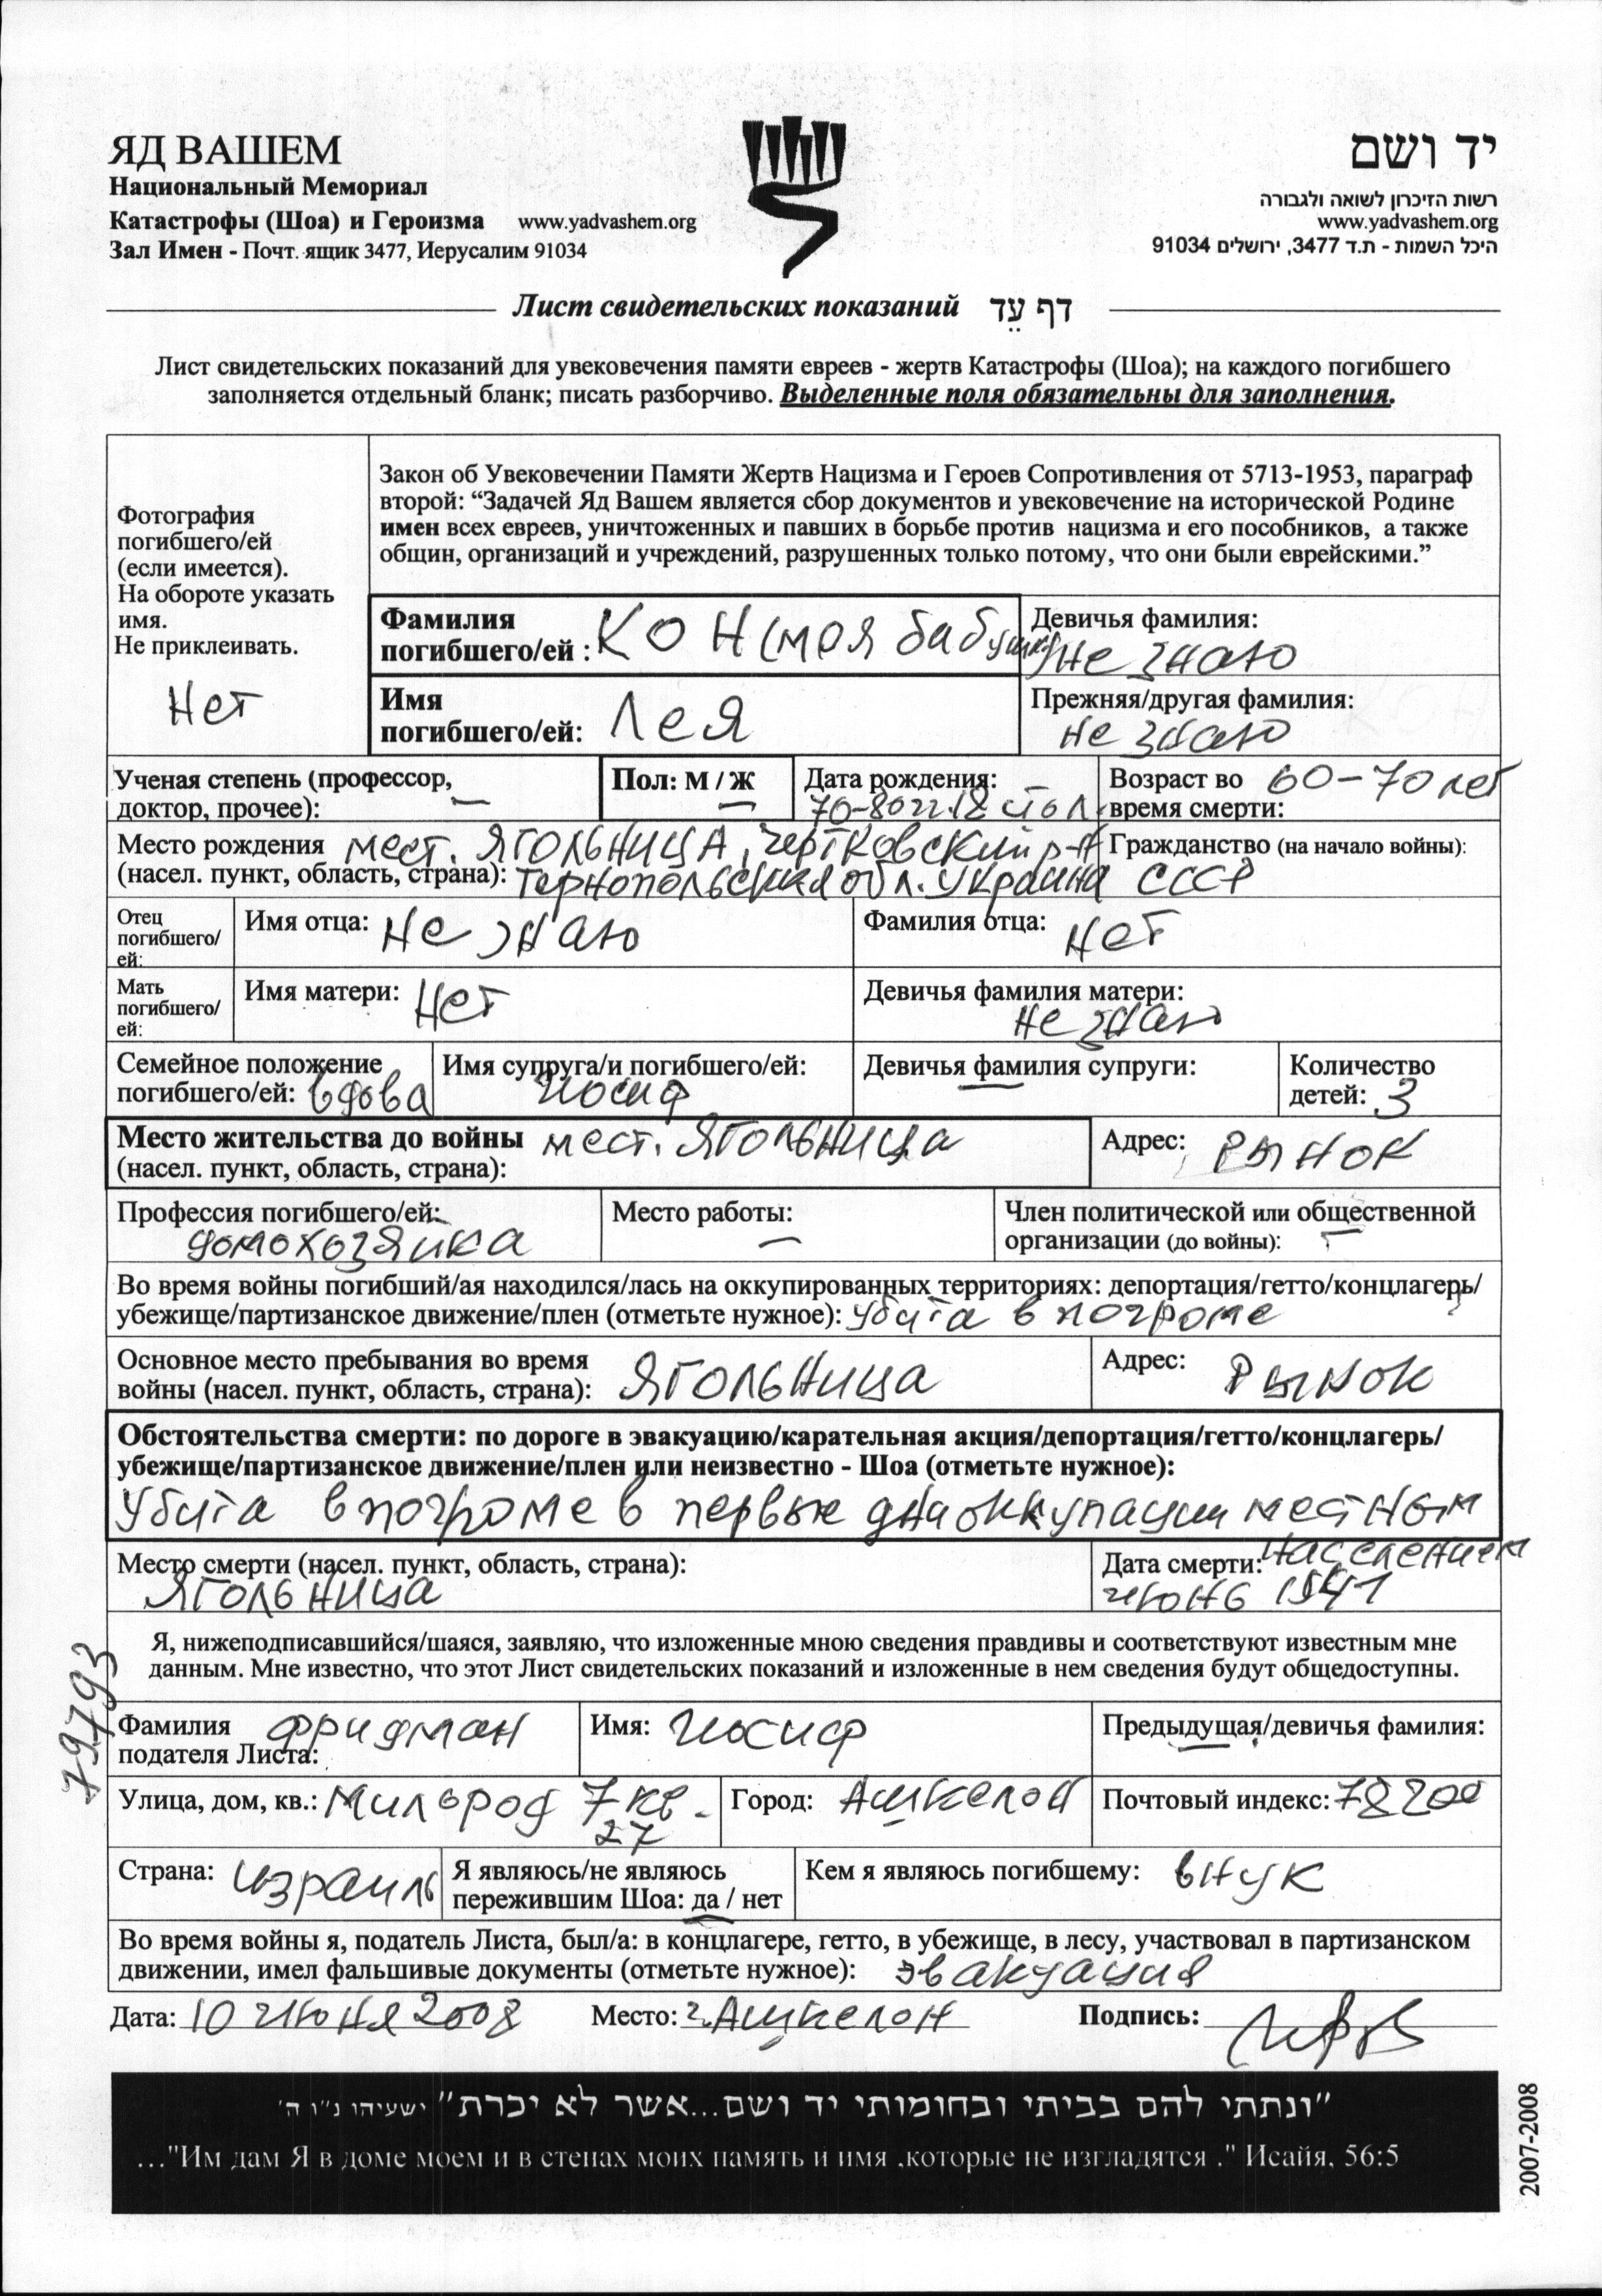 ЯД ВАШЕМ
Национальный Мемориал
Катастрофы (Шоа) и Героизма www.yadvashem.org
Зал Имен - Почт. ящик 3477, Иерусалим 91034
יד ושם
רשות הזיכרון לשואה ולגבורה
www.yadvashem.org
היכל השמות - ת.ד 3477, ירושלים 91034
Лист свидетельских показаний דף עֵד
Лист свидетельских показаний для увековечения памяти евреев - жертв Катастрофы (Шоа); на каждого погибшего
заполняется отдельный бланк; писать разборчиво. Выделенные поля обязательны для заполнения.
Фотография
погибшего/ей
(если имеется).
На обороте указать
имя.
Не приклеивать.
Нет
Закон об Увековечении Памяти Жертв Нацизма и Героев Сопротивления от 5713-1953, параграф
второй: “Задачей Яд Вашем является сбор документов и увековечение на исторической Родине
имен всех евреев, уничтоженных и павших в борьбе против нацизма и его пособников, а также
общин, организаций и учреждений, разрушенных только потому, что они были еврейскими.”
Фамилия
погибшего/ей : КОН (моя бабушка)
Девичья фамилия:
Не знаю
Имя
погибшего/ей: Лея
Прежняя/другая фамилия:
Не знаю
Ученая степень (профессор,
доктор, прочее): —
Пол: М / Ж
Дата рождения:
70-80 гг. 18 стол.
Возраст во 60-70 лет
время смерти:
Место рождения мест. ЯГОЛЬНИЦА, Чертковский р-н
(насел. пункт, область, страна): Тернопольская обл. Украина
Гражданство (на начало войны):
СССР
Отец
погибшего/
ей:
Имя отца: Не знаю
Фамилия отца: Нет
Мать
погибшего/
ей:
Имя матери: Нет
Девичья фамилия матери:
Не знаю
Семейное положение
погибшего/ей: вдова
Имя супруга/и погибшего/ей:
Иосиф
Девичья фамилия супруги:
—
Количество
детей: 3
Место жительства до войны мест. ЯГОЛЬНИЦА
(насел. пункт, область, страна):
Адрес: РЫНОК
Профессия погибшего/ей:
домохозяйка
Место работы:
—
Член политической или общественной
организации (до войны): —
Во время войны погибший/ая находился/лась на оккупированных территориях: депортация/гетто/концлагерь/
убежище/партизанское движение/плен (отметьте нужное): Убита в погроме
Основное место пребывания во время
войны (насел. пункт, область, страна): ЯГОЛЬНИЦА
Адрес: РЫНОК
Обстоятельства смерти: по дороге в эвакуацию/карательная акция/депортация/гетто/концлагерь/
убежище/партизанское движение/плен или неизвестно - Шоа (отметьте нужное):
Убита в погроме в первые дни оккупации местным
населением
Место смерти (насел. пункт, область, страна):
ЯГОЛЬНИЦА
Дата смерти:
июнь 1941
Я, нижеподписавшийся/шаяся, заявляю, что изложенные мною сведения правдивы и соответствуют известным мне
данным. Мне известно, что этот Лист свидетельских показаний и изложенные в нем сведения будут общедоступны.
79793
Фамилия Фридман
подателя Листа:
Имя: Иосиф
Предыдущая/девичья фамилия:
—
Улица, дом, кв.: Мигьрод 7 кв.
27
Город: Ашкелон
Почтовый индекс: 78200
Страна: Израиль
Я являюсь/не являюсь
пережившим Шоа: да / нет
Кем я являюсь погибшему: внук
Во время войны я, податель Листа, был/а: в концлагере, гетто, в убежище, в лесу, участвовал в партизанском
движении, имел фальшивые документы (отметьте нужное): эвакуация
Дата: 10 июня 2008 Место: г. Ашкелон Подпись:
"ונתתי להם בביתי ובחומותי יד ושם...אשר לא יכרת" ישעיהו נ"ו ה'
..."Им дам Я в доме моем и в стенах моих память и имя ,которые не изгладятся ." Исайя, 56:5
2007-2008